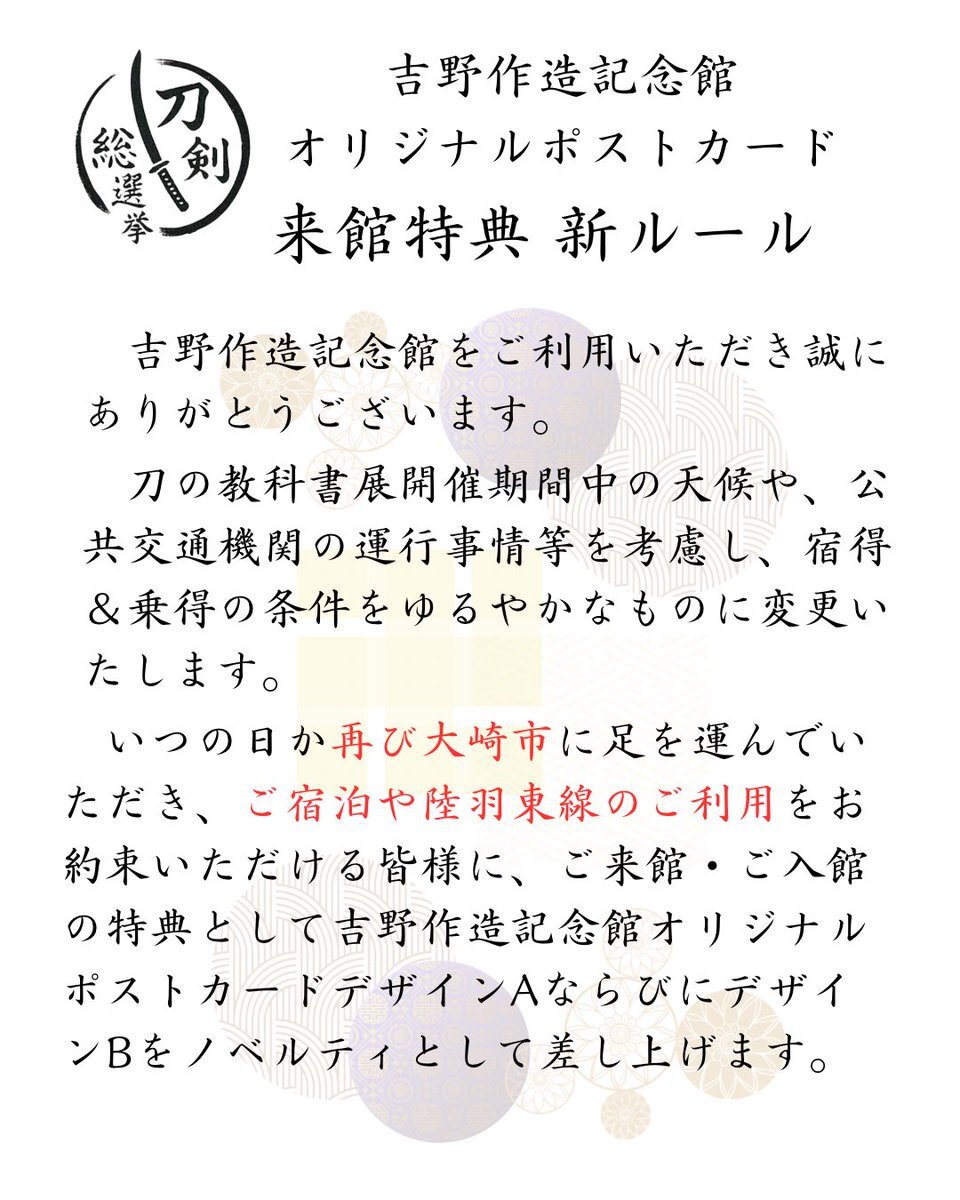 刀剣
総選挙
吉野作造記念館
オリジナルポストカード
来館特典 新ルール
吉野作造記念館をご利用いただき誠に
ありがとうございます。
刀の教科書展開催期間中の天候や、公
共交通機関の運行事情等を考慮し、宿得
&乗得の条件をゆるやかなものに変更い
たします。
いつの日か再び大崎市に足を運んでい
ただき、ご宿泊や陸羽東線のご利用をお
約束いただける皆様に、ご来館・ご入館
の特典として吉野作造記念館オリジナル
ポストカードデザインAならびにデザイ
ンBをノベルティとして差し上げます。